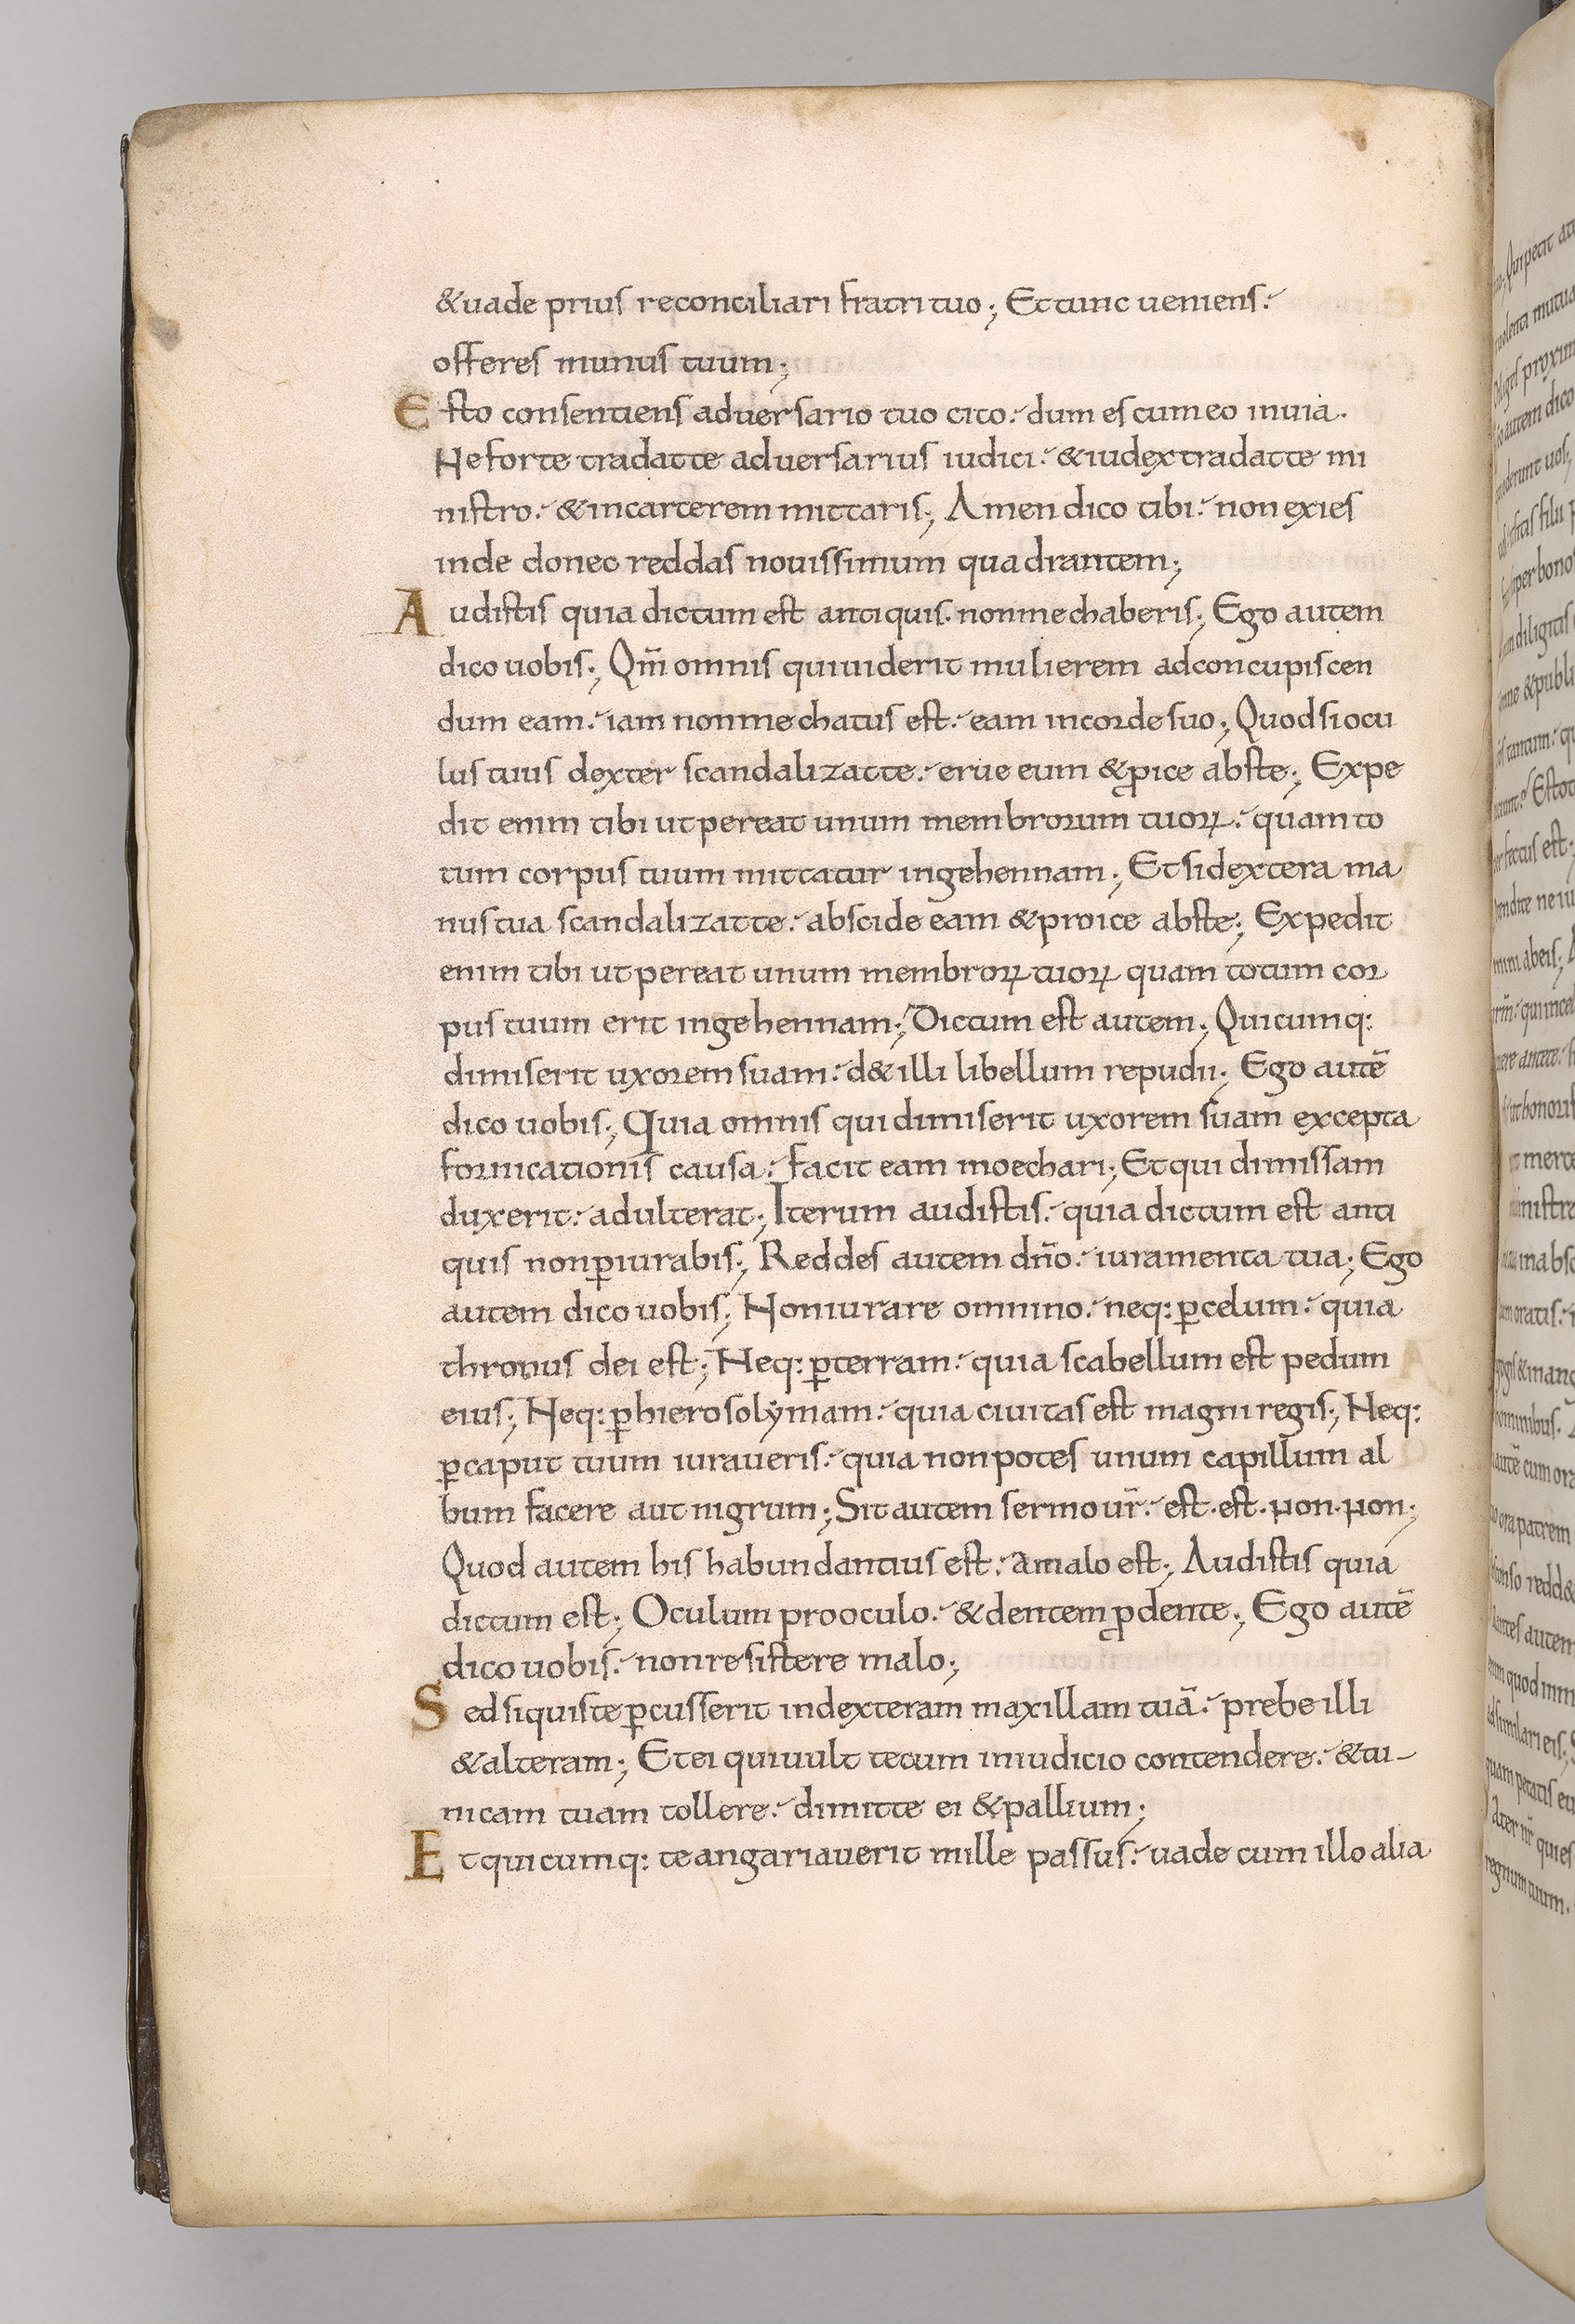 &uade prius reconciliari fratri tuo; Et tunc ueniens.
offeres munus tuum;
Esto consentiens aduersario tuo cito. dum es cum eo in uia.
Ne forte tradat te aduersarius iudici. & iudex tradat te mi
nistro. & in carcerem mittaris; Amen dico tibi. non exies
inde donec reddas nouissimum quadrantem;
Audistis quia dictum est antiquis. non mechaberis; Ego autem
dico uobis; Qm̄ omnis qui uiderit mulierem ad concupiscen
dum eam. iam non mechatus est. eam in corde suo; Quod si ocu
lus tuus dexter scandalizat te. erue eum & ꝓice abs te; Expe
dit enim tibi ut pereat unum membrorum tuoꝝ. quam to
tum corpus tuum mittatur in gehennam; Et si dextera ma
nus tua scandalizat te. abscide eam & proice abs te; Expedit
enim tibi ut pereat unum membroꝝ tuoꝝ quam totum cor
pus tuum erit in gehennam; Dictum est autem; Quicumq:
dimiserit uxorem suam. d& illi libellum repudii; Ego autē
dico uobis; Quia omnis qui dimiserit uxorem suam excepta
fornicationis causa. facit eam moechari; Et qui dimissam
duxerit. adulterat; Iterum audistis. quia dictum est anti
quis non ꝑiurabis; Reddes autem dño. iuramenta tua; Ego
autem dico uobis; Non iurare omnino. neq: ꝑ celum. quia
thronus dei est; Neq: ꝑ terram. quia scabellum est pedum
eius; Neq: ꝑ hierosolymam. quia ciuitas est magni regis; Neq:
ꝑ caput tuum iuraueris. quia non potes unum capillum al
bum facere aut nigrum; Sit autem sermo ur̄. est. est. non. non;
Quod autem his habundantius est. a malo est; Audistis quia
dictum est; Oculum pro oculo. & dentem ꝓ dente; Ego autē
dico uobis. non resistere malo;
Sed si quis te ꝑcusserit in dexteram maxillam tuā. prebe illi
& alteram; Et ei qui uult tecum in iudicio contendere. & tu-
nicam tuam tollere. dimitte ei & pallium;
Et quicumq: te angariauerit mille passus. uade cum illo alia